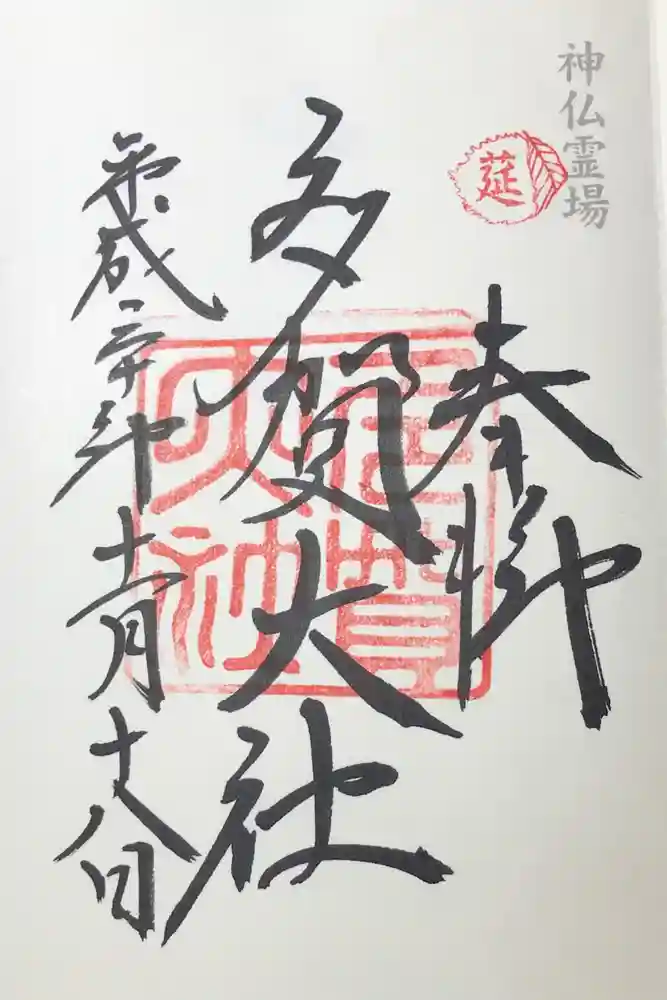 神仏霊場
莚
奉拝
多賀大社
多賀大社
平成三十年十一月十八日